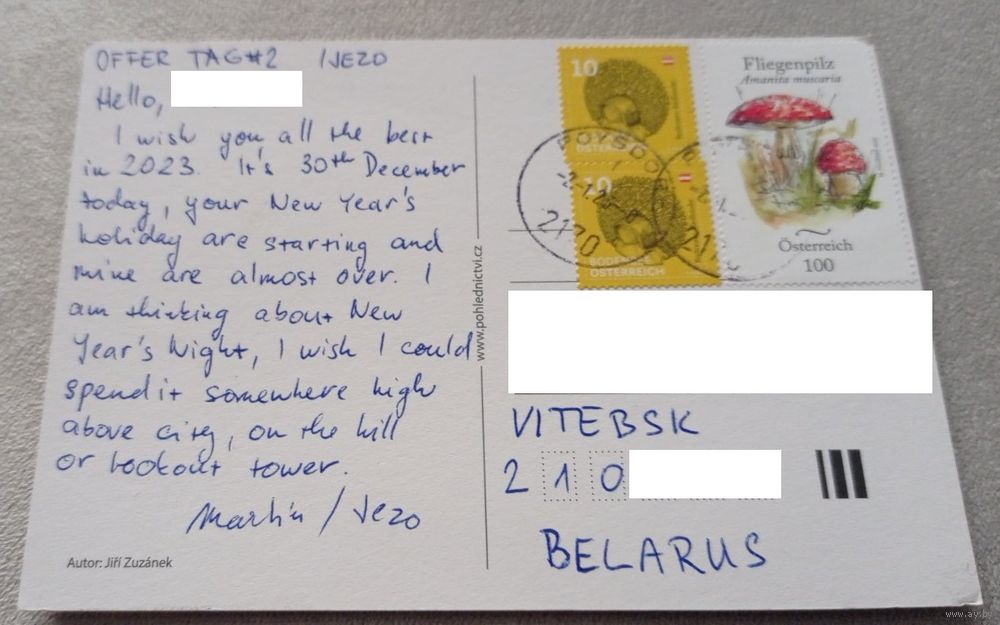 OFFER TAG#2 /JEZO
Hello,
I wish you all the best
in 2023. It's 30th December
today, your New Year's
holiday are starting and
mine are almost over. I
am thinking about New
Year's Night, I wish I could
spend it somewhere high
above city, on the hill
or lookout tower.
Martin / Jezo
Autor: Jiří Zuzánek
www.pohlednictvi.cz
10
ÖSTERREICH
10
BODENSEE
ÖSTERREICH
Fliegenpilz
Amanita muscaria
Österreich
100
POYSDO
2170
VITEBSK
2 1 0
BELARUS
www.ay.by